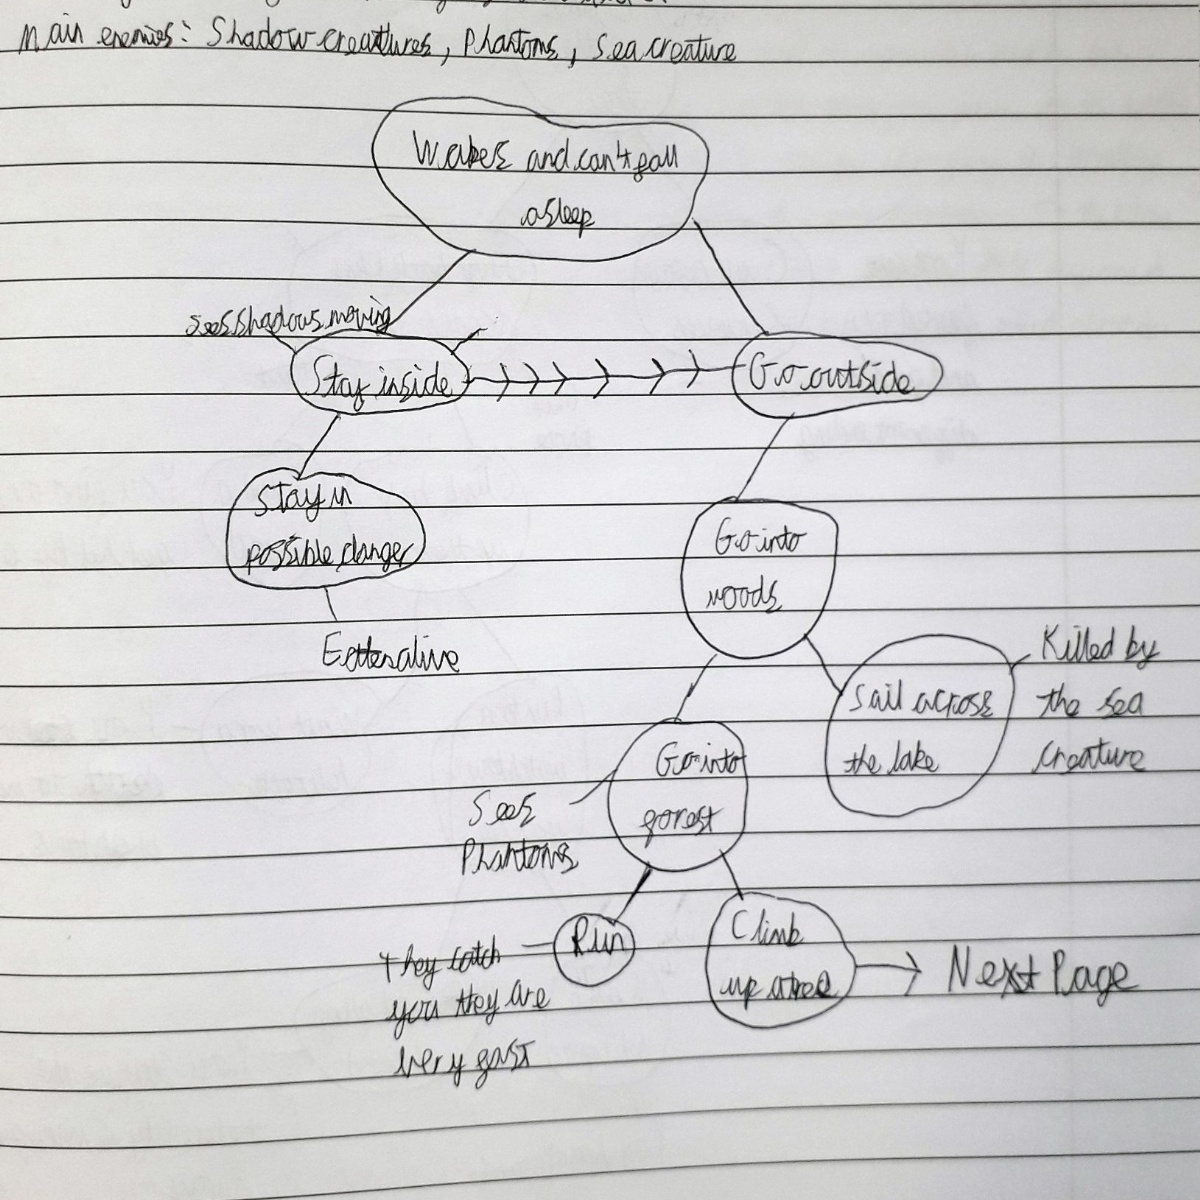 Main enemies: Shadow creatures, Phantoms, Sea creature
Wakes and can't fall
asleep
sees shadows moving
Stay inside
Go outside
Stay in
possible danger
Eaten alive
Go into
woods
Sail across
the lake
Killed by
the sea
creature
Go into
forest
Sees
Phantoms
Run
They catch
you they are
very fast
Climb
up a tree
Next Page